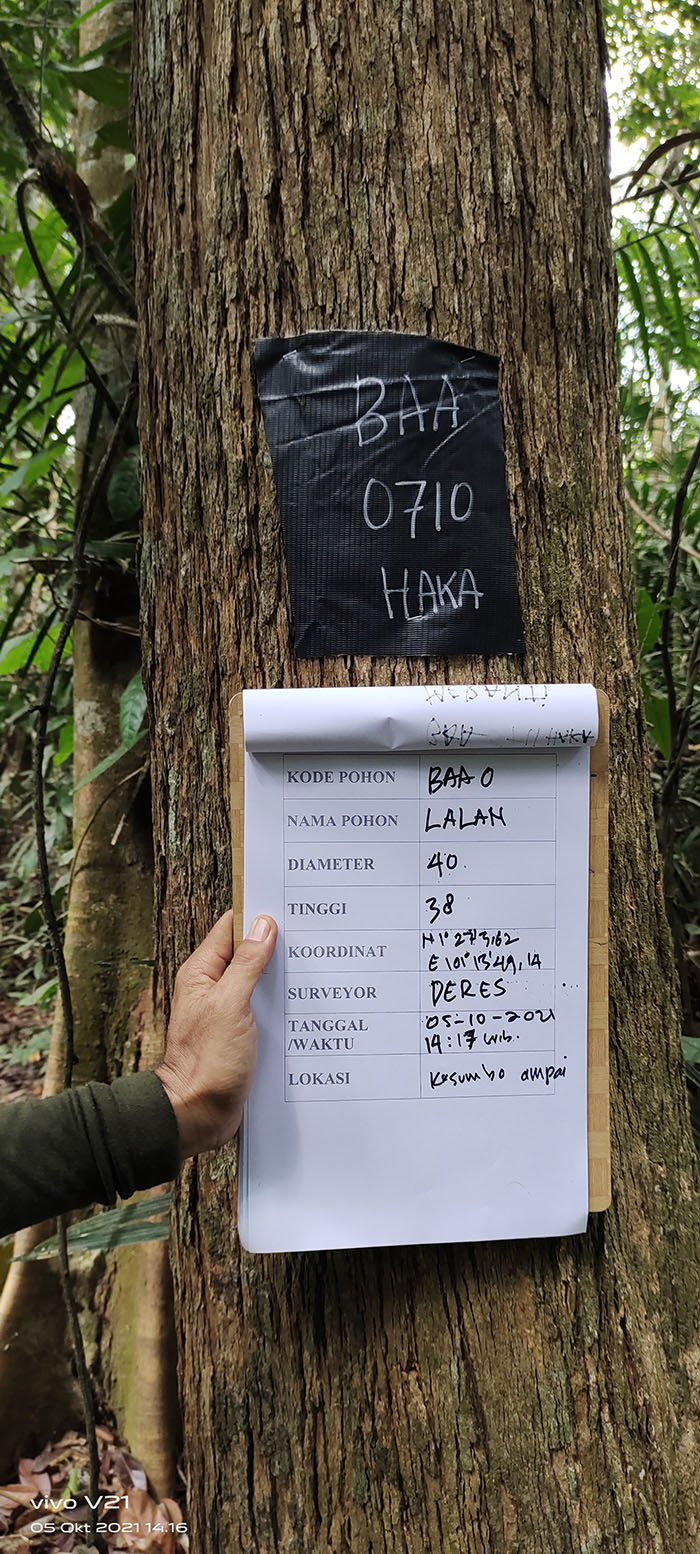 BAA
0710
HAKA
KODE POHON BAA 0
NAMA POHON LALAN
DIAMETER 40.
TINGGI 38
KOORDINAT
E 101° 13' 49,14
SURVEYOR DERES
TANGGAL /WAKTU 05-10-2021
14:17 wib.
LOKASI Kesumbo ampai
vivo V21
05 Okt 2021 14.16